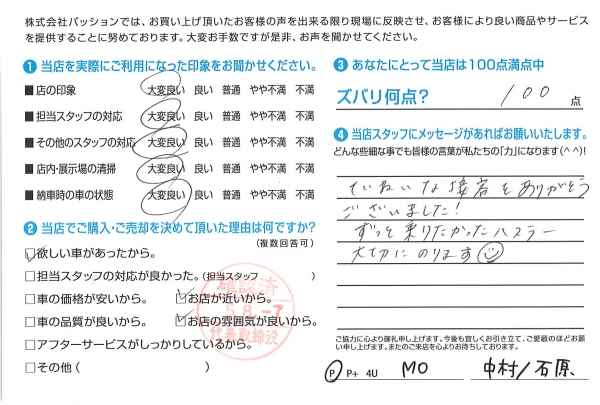 株式会社パッションでは、お買い上げ頂いたお客様の声を出来る限り現場に反映させ、お客様により良い商品やサービス
を提供することに努めております。大変お手数ですが是非、お声を聞かせてください。
❶ 当店を実際にご利用になった印象をお聞かせください。
■店の印象 大変良い 良い 普通 やや不満 不満
■担当スタッフの対応 大変良い 良い 普通 やや不満 不満
■その他のスタッフの対応 大変良い 良い 普通 やや不満 不満
■店内・展示場の清掃 大変良い 良い 普通 やや不満 不満
■納車時の車の状態 大変良い 良い 普通 やや不満 不満
❷ 当店でご購入・ご売却を決めて頂いた理由は何ですか?
(複数回答可)
☑欲しい車があったから。
□担当スタッフの対応が良かった。(担当スタッフ )
□車の価格が安いから。 ☑お店が近いから。
□車の品質が良いから。 ☑お店の雰囲気が良いから。
□アフターサービスがしっかりしているから。
□その他( )
確認済
5.8.-7
代表取締役
❸ あなたにとって当店は100点満点中
ズバリ何点? 100 点
❹ 当店スタッフにメッセージがあればお願いいたします。
どんな些細な事でも皆様の言葉が私たちの「力」になります(^^)!
ていねいな接客をありがとう
ございました!
ずっと乗りたかったハスラー
大切にのります☺
ご協力に心より御礼申し上げます。今後も宜しくお引き立て、ご愛顧のほどお願
い申し上げます。またのご来店を心よりお待ちしております。
P P+ 4U MO 中村/石原、